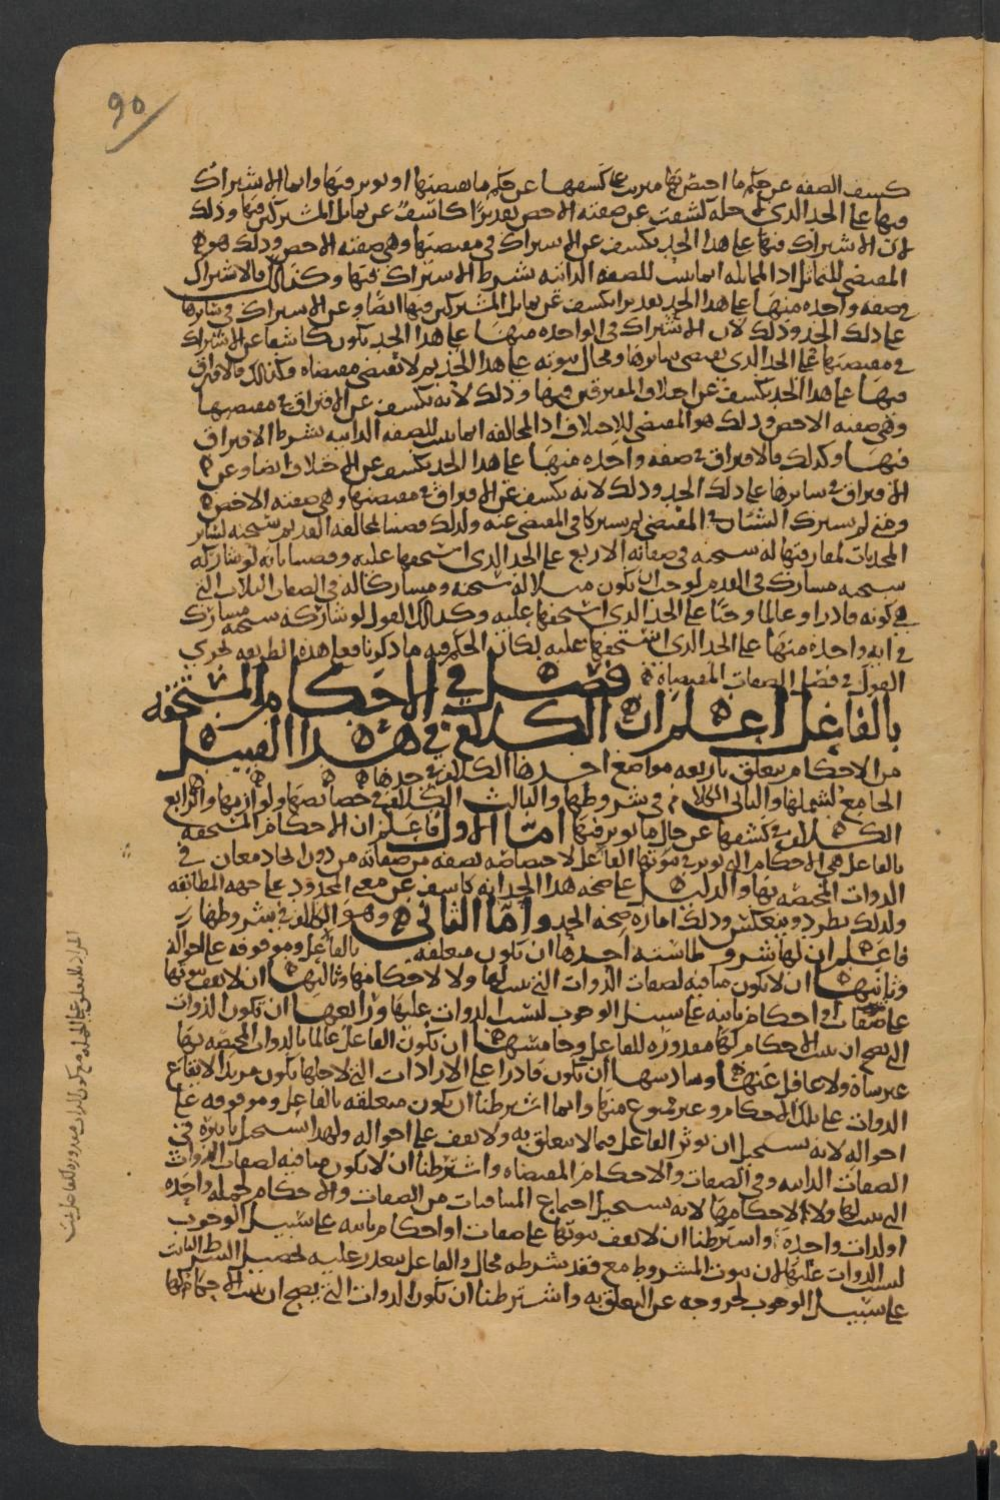 ٩٥
كشف الصفه عن حكم ما اختص بها من حيث كشفها عن حكم ما يقتضيها او يوثر فيها وانما الاشتراك
فيها على الحد الذي له حله كشفت عن صفته الاخص تقديرًا كاشفٌ عن تماثل المشتركين فيها وذلك
لان الاشتراك فيها على هذا الحد يكشف عن الاشتراك في مقتضيها وهي صفته الاخص وذلك هو
المقتضي للتماثل اذ المماثله انما تثبت للصفه الذاتيه بشرط الاشتراك فيها وكذلك فالاشتراك
في صفه واحده منها على هذا الحد تقديرا يكشف عن تماثل المشتركين فيها ايضًا وعن الاشتراك في سائرها
على ذلك الحد وذلك لان الاشتراك في الواحده منها على هذا الحد يكون كاشفا عن الاشتراك
في مقتضيها على الحد الذي يقتضي سائرها ومحال ثبوته على هذا الحد ثم لا تقتضي مقتضاه وكذلك فالافتراق
فيها على هذا الحد يكشف عن اختلاف المفترقين فيها وذلك لانه يكشف عن الافتراق في مقتضيها
وهي صفته الاخص وذلك هو المقتضي للاختلاف اذ المخالفه انما تثبت للصفه الذاتيه بشرط الافتراق
فيها وكذلك فالافتراق في صفه واحده منها على هذا الحد يكشف عن الاختلاف ايضا وعن
الافتراق في سائرها على ذلك الحد وذلك لانه يكشف عن الافتراق في مقتضيها وهي صفته الاخص
ومتى لم يشترك الشيئان في المقتضي لم يشتركا في المقتضى عنه ولذلك قضينا لمخالفه القديم سبحنه لسائر
المحدثات لمفارقتها له سبحنه في صفاته الاربع على الحد الذي استحقها عليه وقضينا بانه لو شاركه
سبحنه مشارك في القدم لوجب ان يكون مثلا له سبحنه ومشاركا له في الصفات الثلاث التي
هي كونه قادرا وعالما وحيًا على الحد الذي استحقها عليه وكذلك القول لو شاركه سبحنه مشارك
في ايه واحده منها على الحد الذي استحقها عليه لكان الحكم فيه ما ذكرنا فعلى هذه الطريقه يجري
القول في فصل الصفات المقتضاه فصل في الاحكام المستحقه
بالفاعل اعلم ان الكلام في هذا القبيل
من الاحكام يتعلق باربعه مواضع احدها الكلام في حدها
الجامع لشملها والثاني الكلام في شروطها والثالث الكلام في خصائصها ولوازمها والرابع
الكلام في كشفها عن حال ما يوثر فيها اما الاول فاعلم ان الاحكام المستحقه
بالفاعل هي الاحكام التي يوثر في ثبوتها الفاعل لاختصاصه بصفه من صفاته من دون ايجاد معان في
الذوات المختصه بها والدليل على صحه هذا الحد انه كاشف عن معنى المحدود على جهه المطابقه
ولذلك يطرد وينعكس وذلك اماره صحه الحد واما الثاني وهو الكلام في شروطها
فاعلم ان لها شروطا سته احدها ان تكون متعلقه بالفاعل وموقوفه على احواله
وثانيها ان لا تكون منافيه لصفات الذوات التي تثبت لها ولا لاحكامها وثالثها ان لا يقف ثبوتها
على صفات او احكام ثابته على سبيل الوجوب ليست الذوات عليها ورابعها ان تكون الذوات
التي يصح ان تثبت الاحكام لها مقدوره للفاعل وخامسها ان يكون الفاعل عالما بالذوات المختصه بها
غير ساه ولا غافل عنها وسادسها ان يكون قادرا على الارادات التي لاجلها يكون مريدا لايقاع
الذوات على تلك الاحكام وغير ممنوع منها وانما اشترطنا ان تكون متعلقه بالفاعل وموقوفه على
احواله لانه يستحيل ان يوثر الفاعل فيما لا يتعلق به ولا يقف على احواله ولهذا يستحيل تاثيره في
الصفات الذاتيه وفي الصفات والاحكام المقتضاه واشترطنا ان لا تكون منافيه لصفات الذوات
التي تثبت لها ولا لاحكامها لانه يستحيل اجتماع المتنافيات من الصفات والاحكام لجمله واحده
او لذات واحده واشترطنا ان لا يقف ثبوتها على صفات او احكام ثابته على سبيل الوجوب
ليست الذوات عليها لان ثبوت المشروط مع فقد شرطه محال والفاعل يتعذر عليه تحصيل الشرط الثابت
على سبيل الوجوب لخروجه عن التعلق به واشترطنا ان تكون الذوات التي يصح ان تثبت الاحكام لها